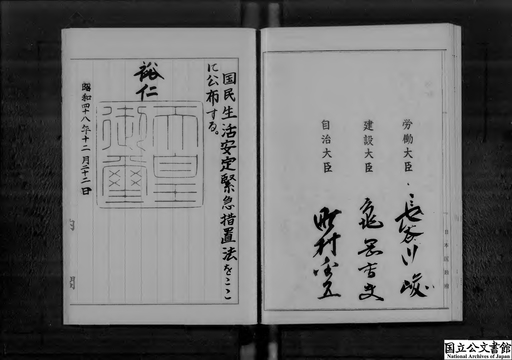 労働大臣 長谷川峻
建設大臣 亀岡高夫
自治大臣 町村金五
国民生活安定緊急措置法をここ
に公布する。
裕仁
天皇
御璽
昭和四十八年十二月二十二日
国立公文書館
National Archives of Japan